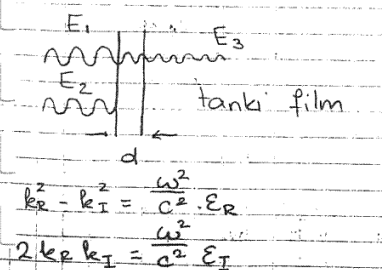 E₁
E₃
E₂
tanki film
d
k_R² - k_I² = ω²/c² · ε_R
2 k_R k_I = ω²/c² ε_I